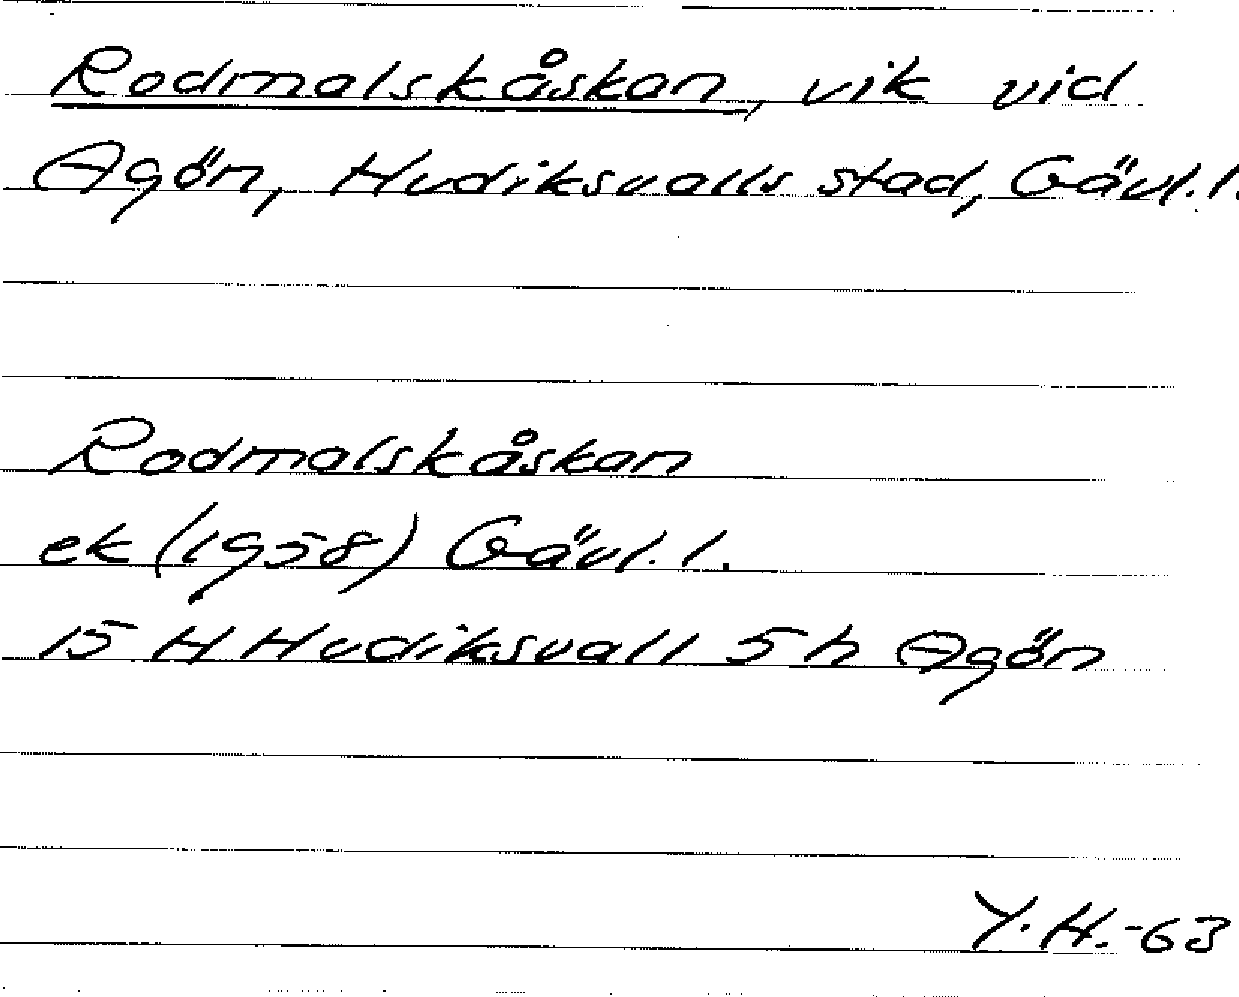 Rodmalskåskan, vik vid
Agön, Hudiksvalls stad, Gävl.l.
Rodmalskåskan
ek (1958) Gävl.l.
15 H Hudiksvall 5 h Agön
Y.H.-63